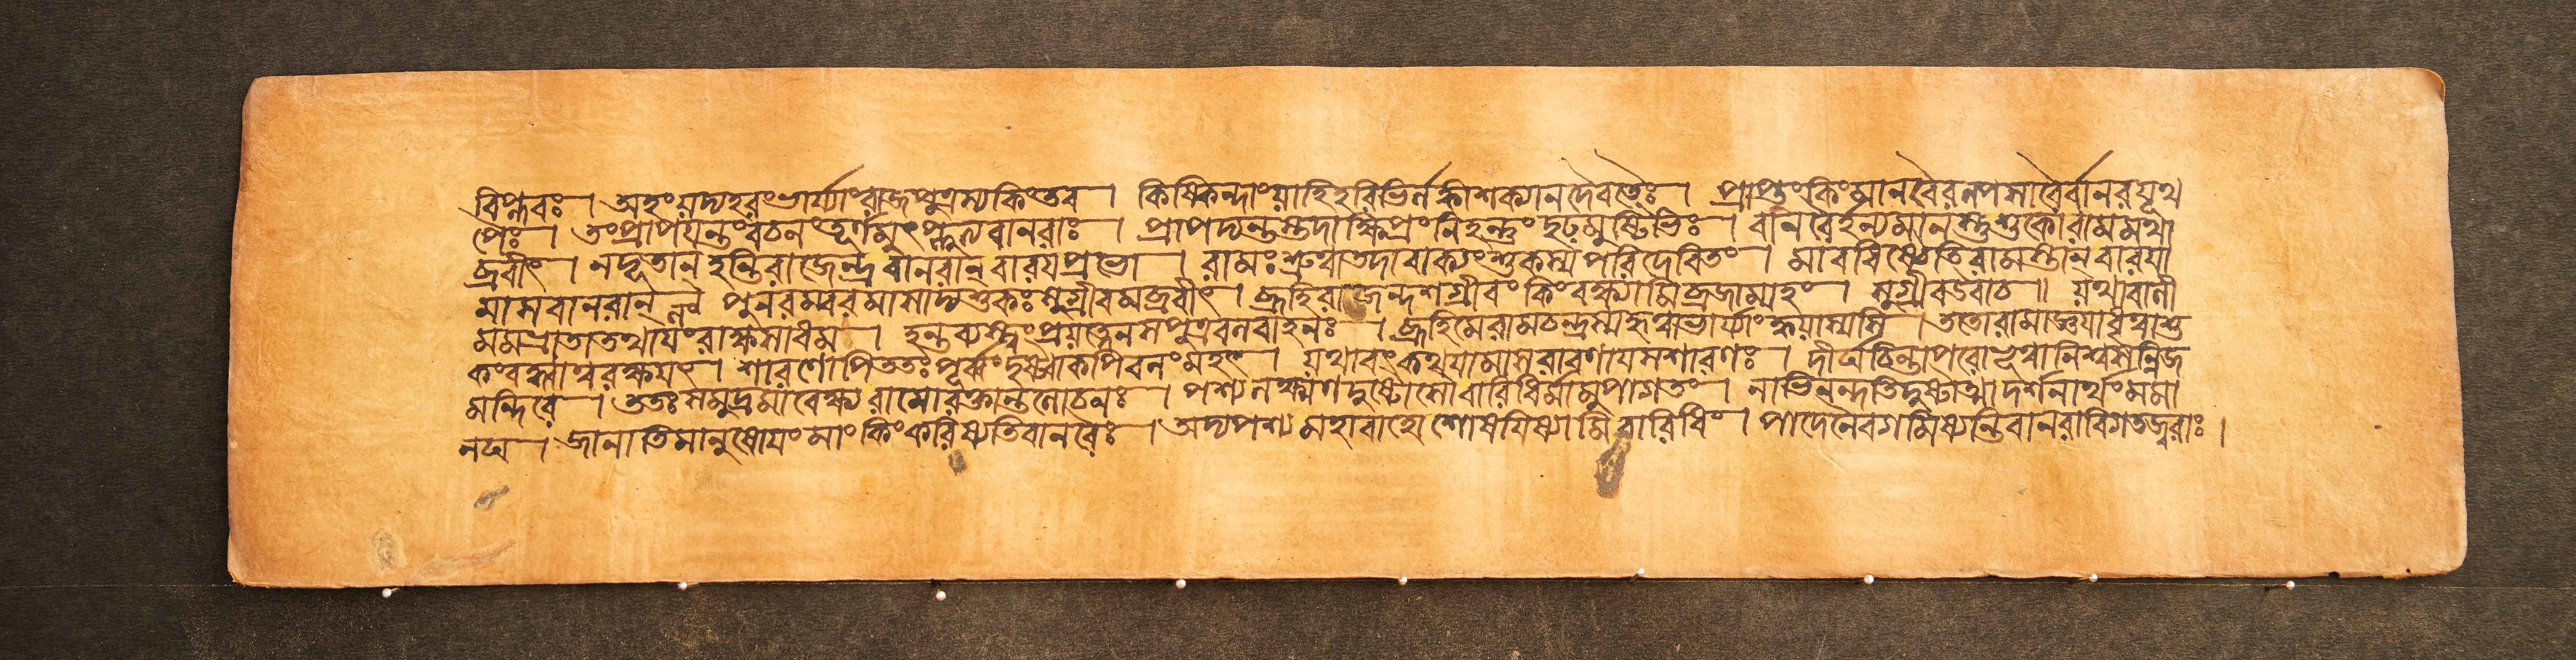 বিপ্লবঃ । অহং যদ্যহরং ভার্য্যাং রাজপুত্রস্য কিং তব । কিষ্কিন্দাং যাহি হরিভির্লঙ্কা শক্যা ন দৈবতৈঃ । প্রাপ্তুং কিং মানবৈরল্পসত্ত্বৈর্বানরযূথ
পৈঃ । তং প্রাপয়ন্তং বচনং তূর্ণমুৎপ্লুত্য বানরাঃ । প্রাপদ্যন্ত তদা ক্ষিপ্রং নিহন্তুং দৃঢ়মুষ্টিভিঃ । বানরৈর্হন্যমানস্তু শুকো রামমথা
ব্রবীৎ । ন দূতান্ হন্তি রাজেন্দ্র বানরান্ বারয় প্রভো । রামঃ শ্রুত্বা তদা বাক্যং শুকস্য পরিদেবিতং । মা বধিষ্টেতি রামস্তান্ বারয়া
মাস বানরান্ পুনরম্বরমাসাদ্য শুকঃ সুগ্রীবমব্রবীৎ । ব্রূহি রাজন্ দশগ্রীবং কিং বক্ষ্যামি ব্রজাম্যহং । সুগ্রীব উবাচ ॥ যথা বালী
মম ভ্রাতা তথা ত্বং রাক্ষসাধম । হন্তব্যস্ত্বং প্রযত্নেন সপুত্রবলবাহনঃ । ব্রূহি মে রামচন্দ্রস্য হৃত্বা ভার্য্যাং ক্ব যাস্যসি । ততো রামাজ্ঞয়া ধৃত্বা শু
কং বদ্ধ্বান্বরক্ষয়ৎ । শার্দূলোপি ততঃ পূর্ব্বং দৃষ্ট্বা কপিবলং মহৎ । যথাবৎ কথয়ামাস রাবণায় স রাক্ষসঃ । দীর্ঘচিন্তাপরো ভূত্বা নিশ্বসন্নিজ
মন্দিরে । ততঃ সমুদ্রমাবেক্ষ্য রামো রক্তান্তলোচনঃ । পশ্য লক্ষ্মণ দুষ্টোসৌ বারিধির্মামুপাগতং । নাভিনন্দতি দুষ্টাত্মা দর্শনার্থং মমা
নঘ । জানাতি মানুষোয়ং মাং কিং করিষ্যতি বানরৈঃ । অদ্য পশ্য মহাবাহো শোষয়িষ্যামি বারিধিং । পাদেনৈব গমিষ্যন্তি বানরা বিগতজ্বরাঃ ।